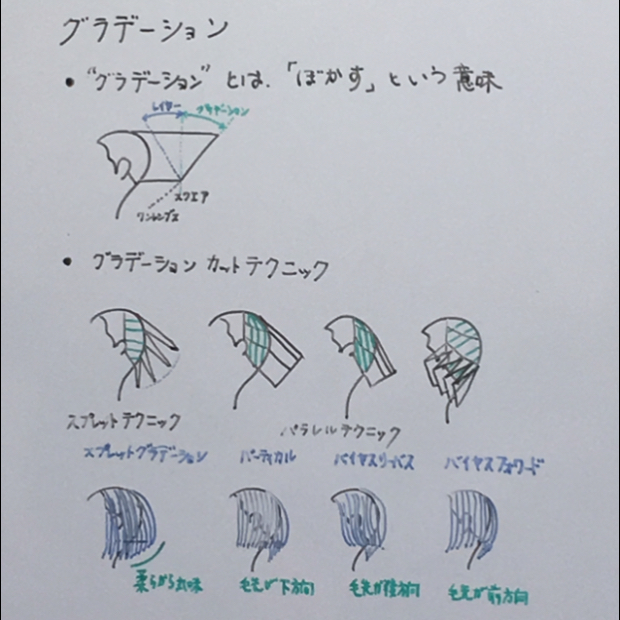 グラデーション
• "グラデーション" とは、「ぼかす」という意味
レイヤー グラデーション
スクエア
ワンレングス
• グラデーション カットテクニック
スプレットテクニック パラレルテクニック
スプレットグラデーション バーティカル バイヤスリバース バイヤスフォワード
柔らかい丸味 毛先が下方向 毛先が後方向 毛先が前方向